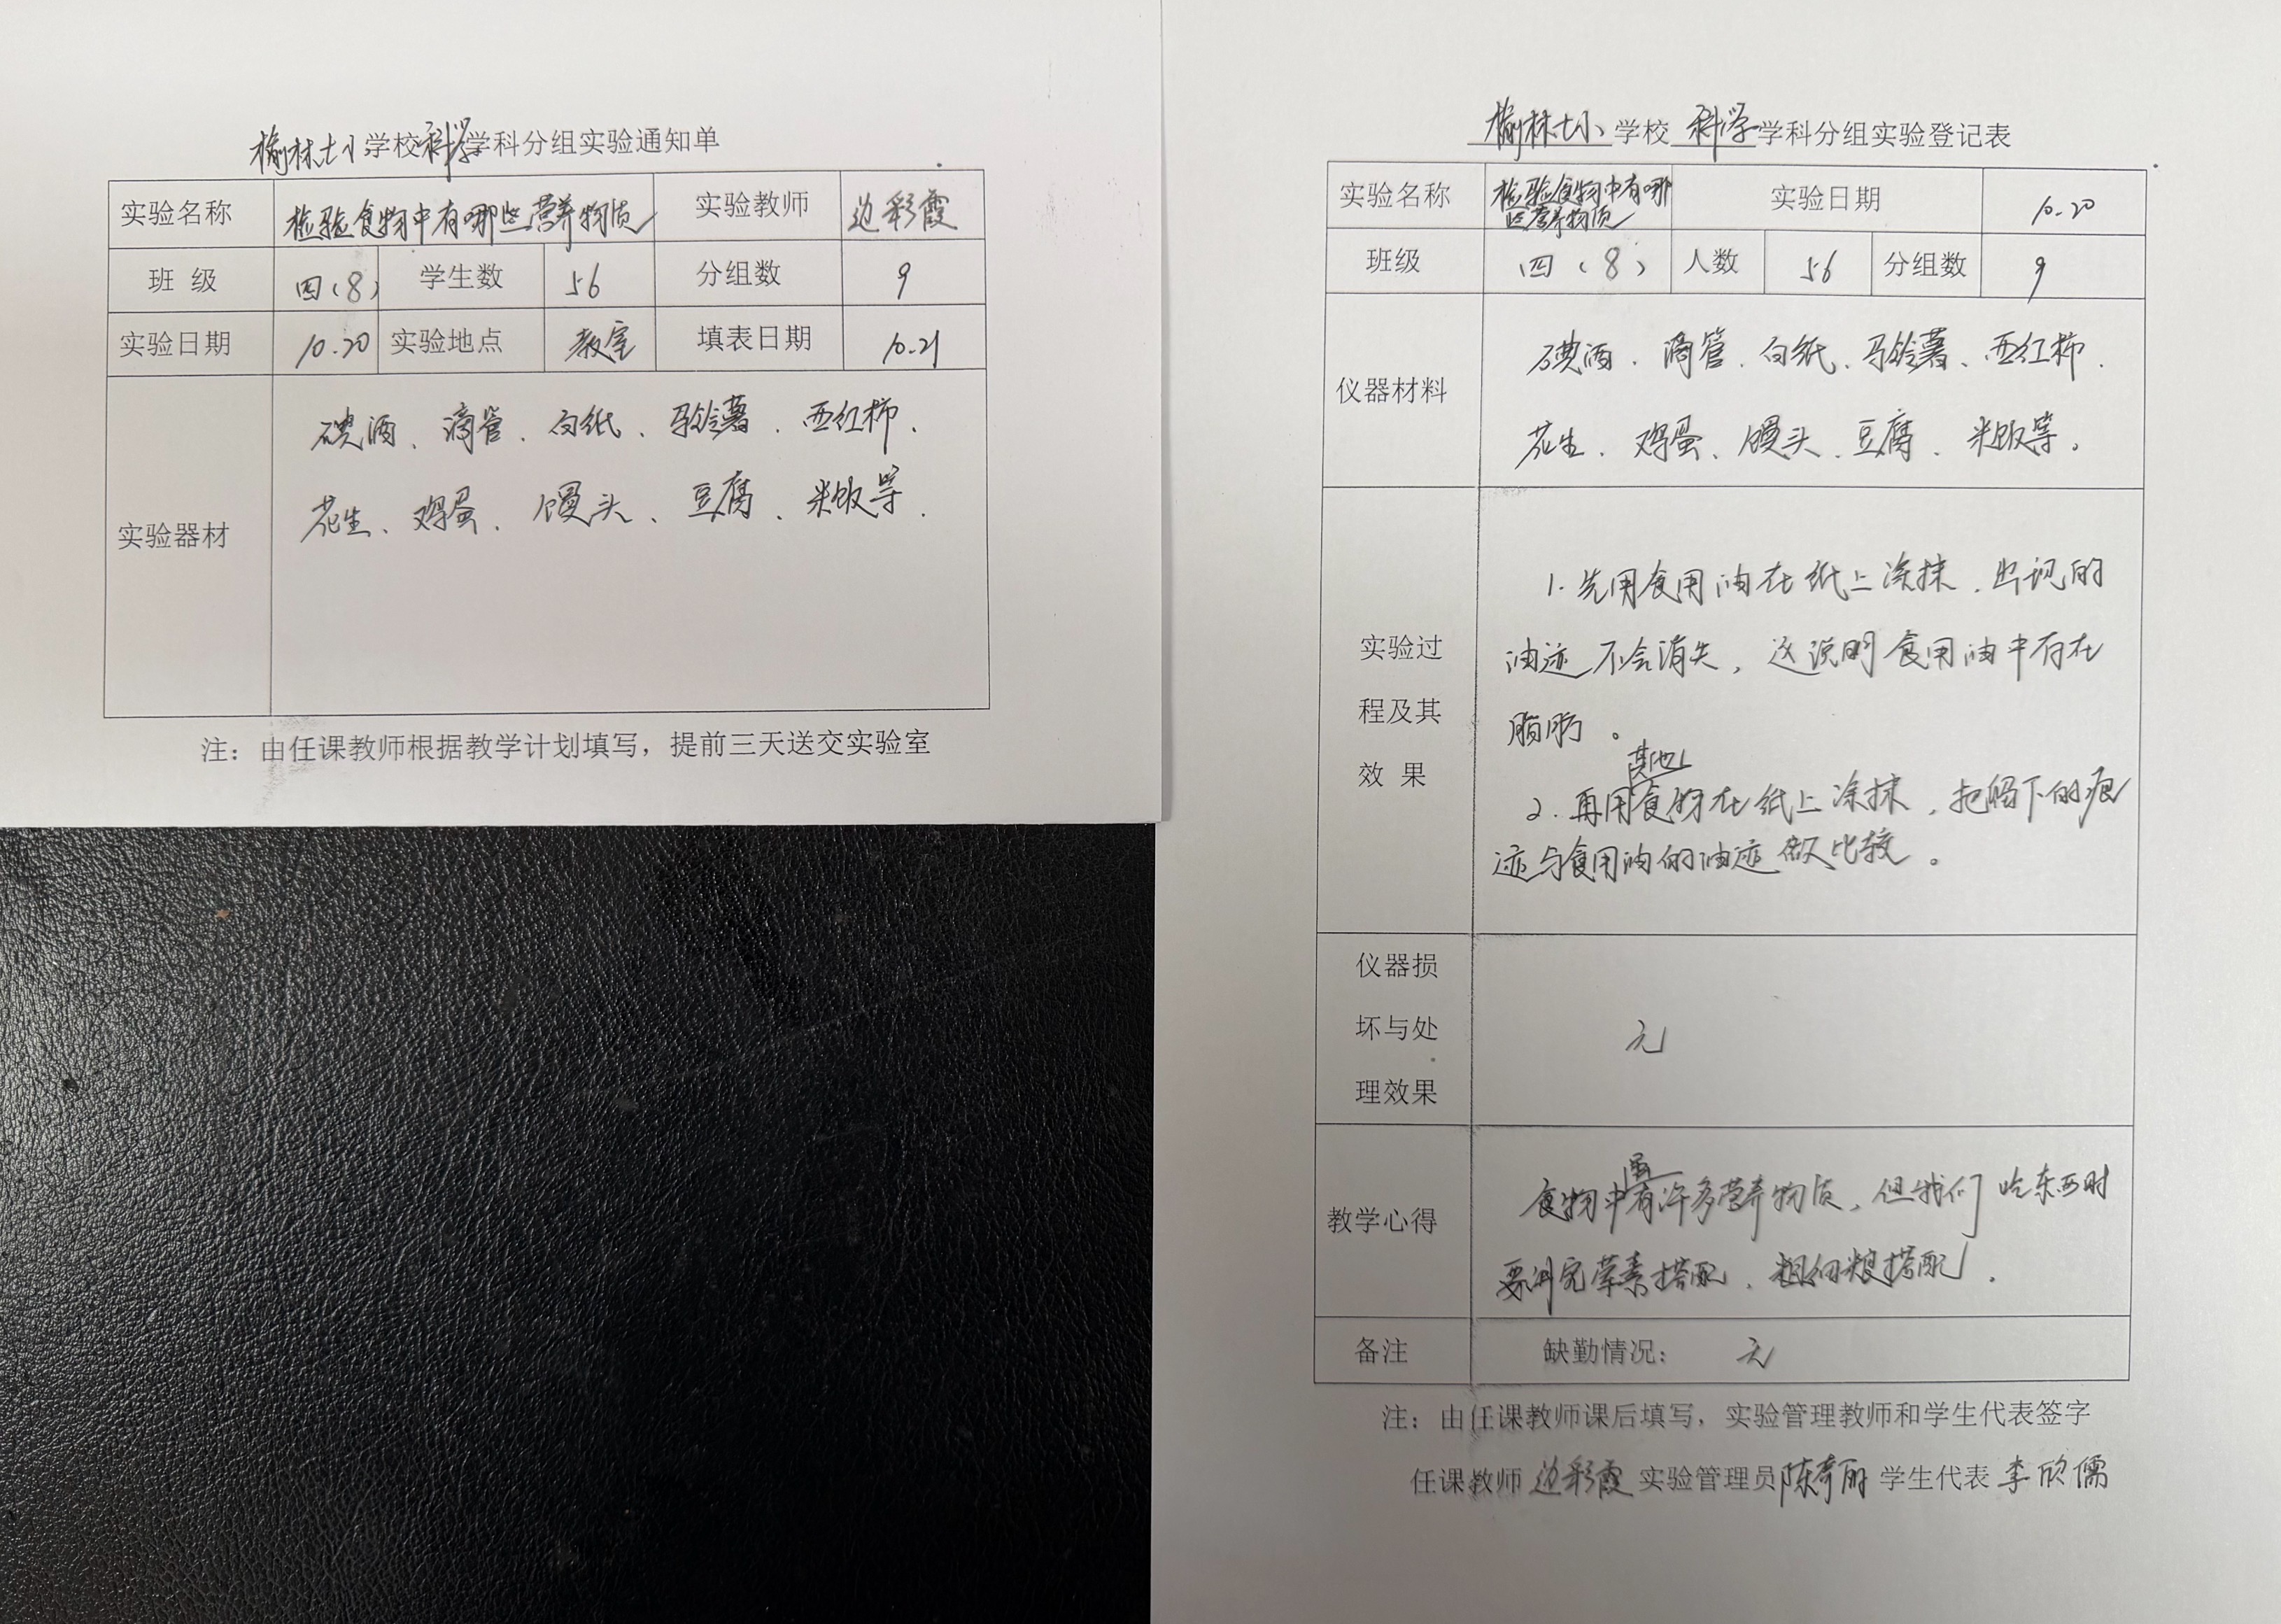 榆林七小学校科学学科分组实验通知单
实验名称 检验食物中有哪些营养物质 实验教师 边彩霞
班 级 四(8) 学生数 56 分组数 9
实验日期 10.20 实验地点 教室 填表日期 10.21
实验器材
碘酒、滴管、白纸、马铃薯、西红柿、
花生、鸡蛋、馒头、豆腐、米饭等.
注：由任课教师根据教学计划填写，提前三天送交实验室
榆林七小 学校 科学 学科分组实验登记表
实验名称 检验食物中有哪
些营养物质
实验日期 10.20
班级 四(8) 人数 56 分组数 9
仪器材料
碘酒、滴管、白纸、马铃薯、西红柿、
花生、鸡蛋、馒头、豆腐、米饭等。
实验过
程及其
效 果
1.先用食用油在纸上涂抹，出现的
油迹不会消失，这说明食用油中存在
脂肪。
2.再用其他食物在纸上涂抹，把留下的痕
迹与食用油的油迹做比较。
仪器损
坏与处
理效果
无
教学心得
食物中有许多营养物质，但我们吃东西时
要讲究荤素搭配、粗细粮搭配.
备注 缺勤情况： 无
注：由任课教师课后填写，实验管理教师和学生代表签字
任课教师 边彩霞 实验管理员 陈奇丽 学生代表 李欣儒